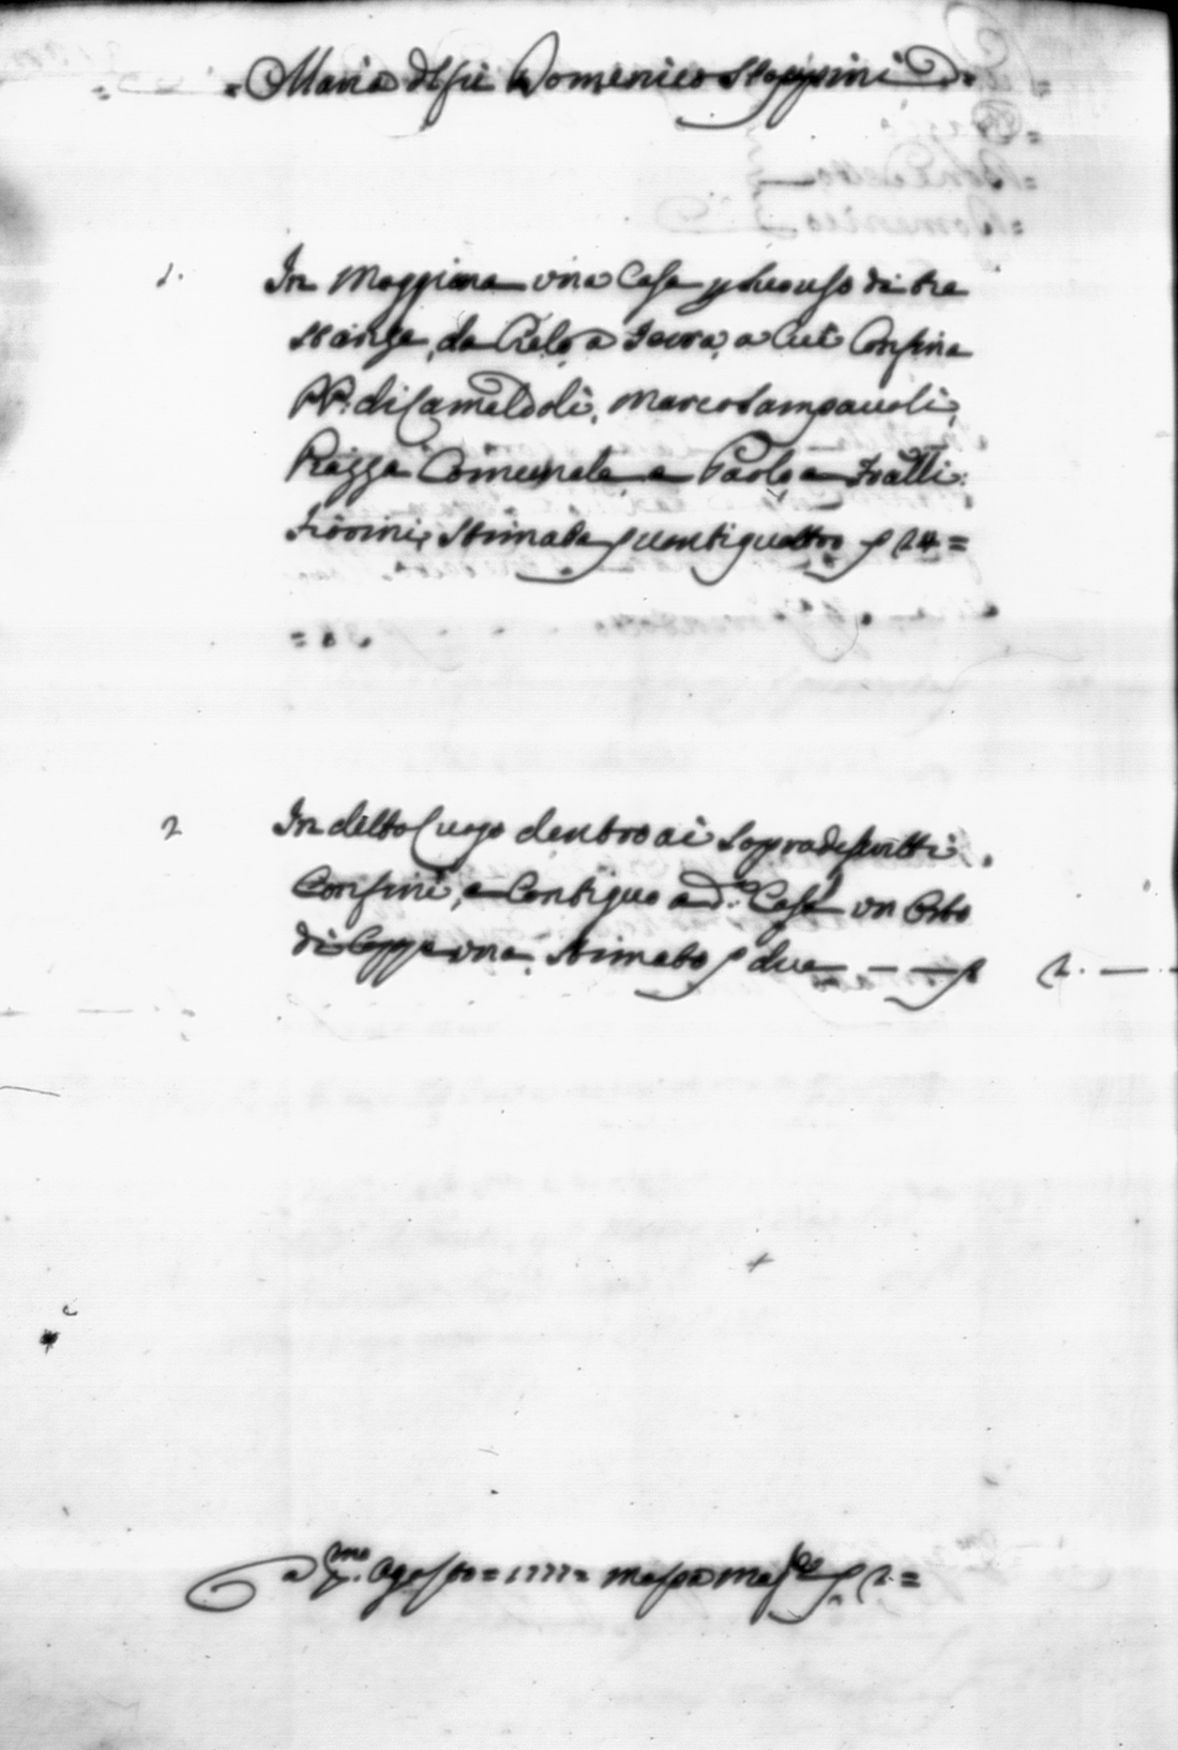 = Maria del fù Domenico Stoppini =
1. In Moggiana una Casa p suo uso di tre
stanze, da Cielo a Terra, a Cui Confina
PP. di Camaldoli, Marco Sampauoli,
Piazza Comunale e Paolo e Fratelli
Fiorini, Stimata Scudi ventiquattro 24 =
2 In detto Luogo dentro ai Sopradescritti
Confini, e Contiguo a d.ª Casa un Orto
di Coppe una, Stimato due — — 2. —
a p.mo Agosto = 1777 = 2. =